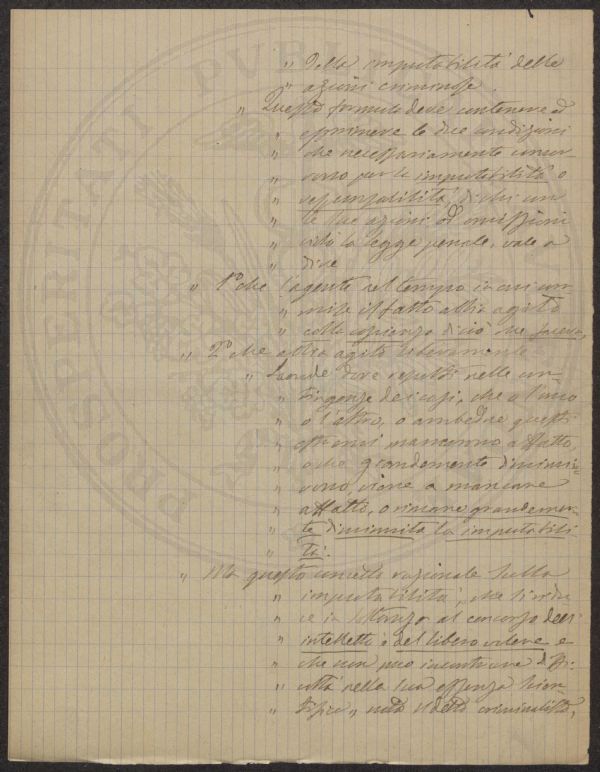 " Della imputabilità delle
" azioni criminose.
" Questa formula deve contenere ed
" esprimere le due condizioni
" che necessariamente concor-
" rono per la imputabilità o
" responsabilità di chi con
" le sue azioni od omissioni
" violò la legge penale, vale a
" dire
" 1° che l'agente nel tempo in cui com-
" mise il fatto abbia agito
" colla coscienza di ciò che faceva,
" 2° che abbia agito liberamente
" Laonde dove rispetto nelle con-
" tingenze dei casi, che o l'uno
" o l'altro, o ambedue questi
" estremi mancarono affatto,
" o che grandemente diminui-
" rono, viene a mancare
" affatto, o rimane grandemen-
" te diminuita la imputabili-
" tà.
" Ma questo concetto razionale sulla
" imputabilità, che si ridu-
" ce in sostanza al concorso dell'
" intelletto e del libero volere e
" che non può incontrare diffi-
" coltà nella sua essenza scien-
" tifica, nota il detto criminalista,
PROSPERITATI PUBL